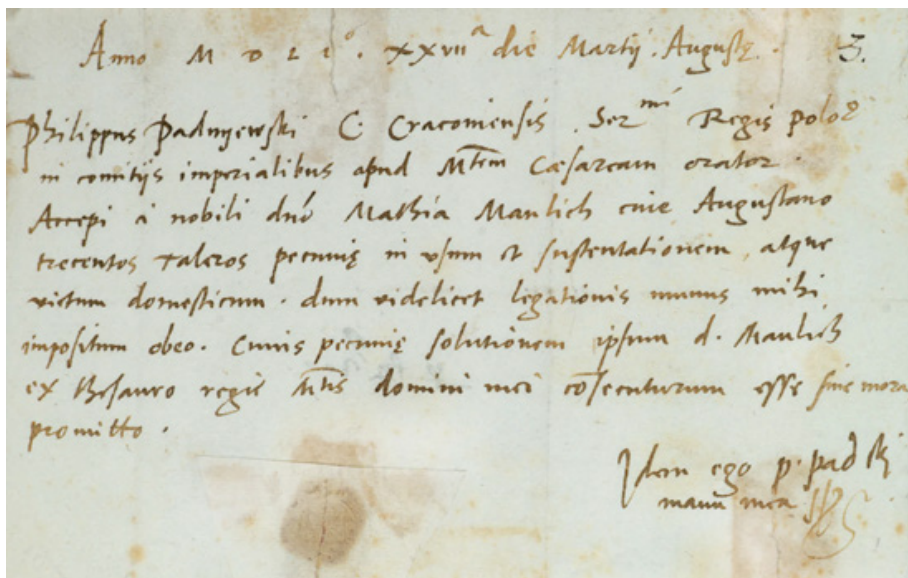 Anno M D L I°. XXVII^a die Martij. Augustę. 3.
Philippus Padnyewski C Cracoviensis. Ser^mi Regis Polo℞
in comitijs imperialibus apud M^tem Cæsaream orator.
Accepi à nobili dno Mathia Manlich cive Augustano
trecentos taleros pecunię in usum et sustentationem, atque
victum domesticum. dum videlicet legationis munus mihi
impositum obeo. Cuius pecunię solutionem ipsum d. Manlich
ex thesauro regie M^tis domini mei cōsecuturum esse sine mora
promitto.
Idem ego p. pad ski
manu mea